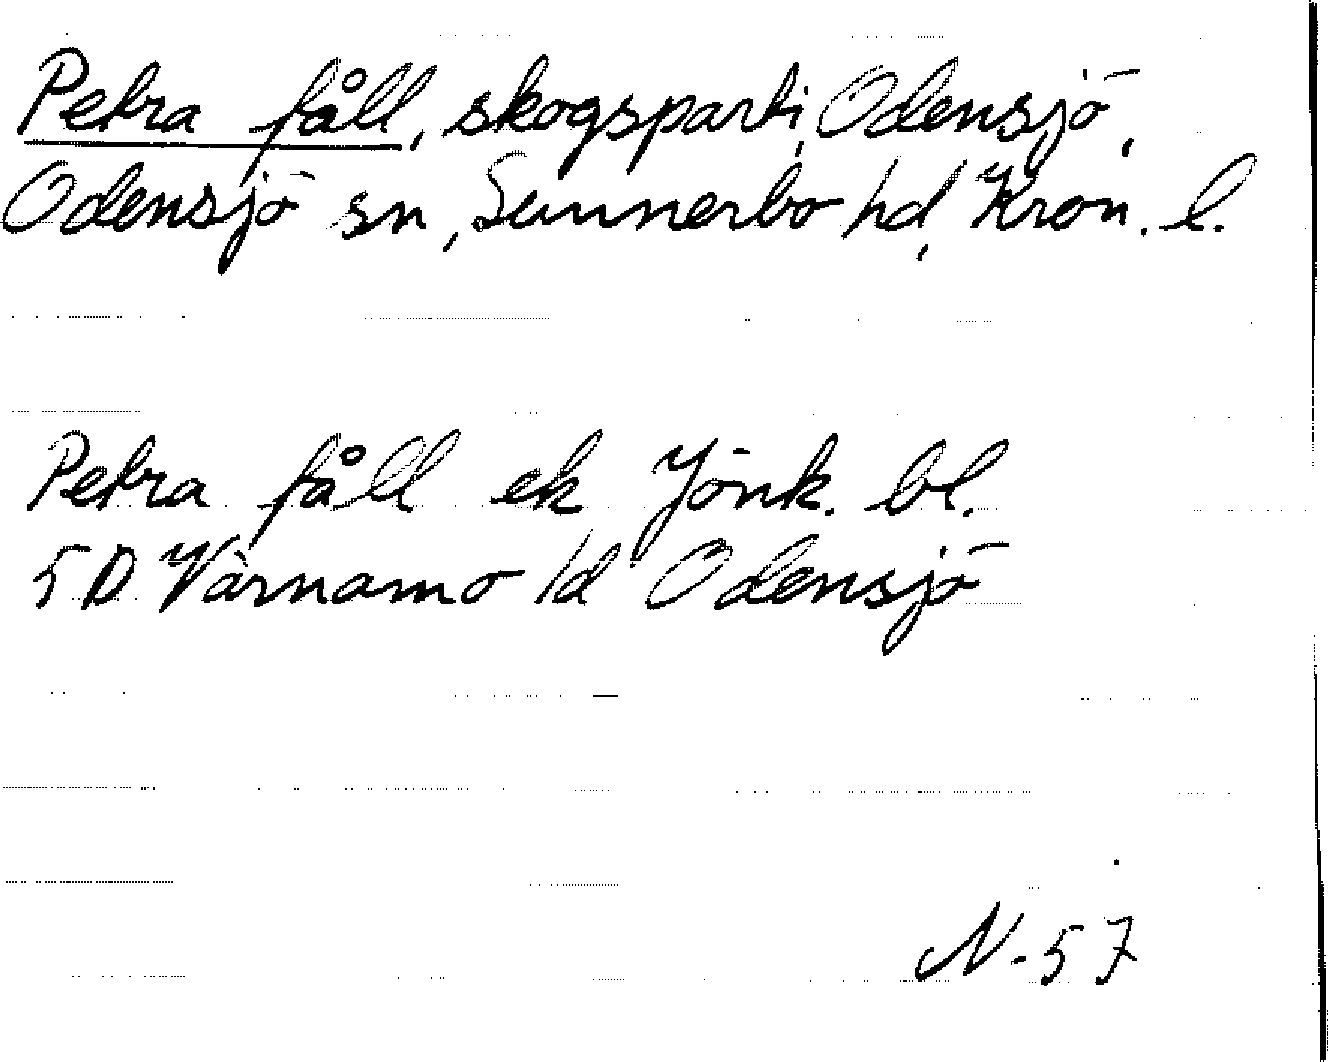 Petra fåll, skogsparti, Odensjö,
Odensjö sn, Sunnerbo hd, Kron. l.
Petra fåll ek Jönk. bl.
5D Värnamo /d Odensjö
N-57